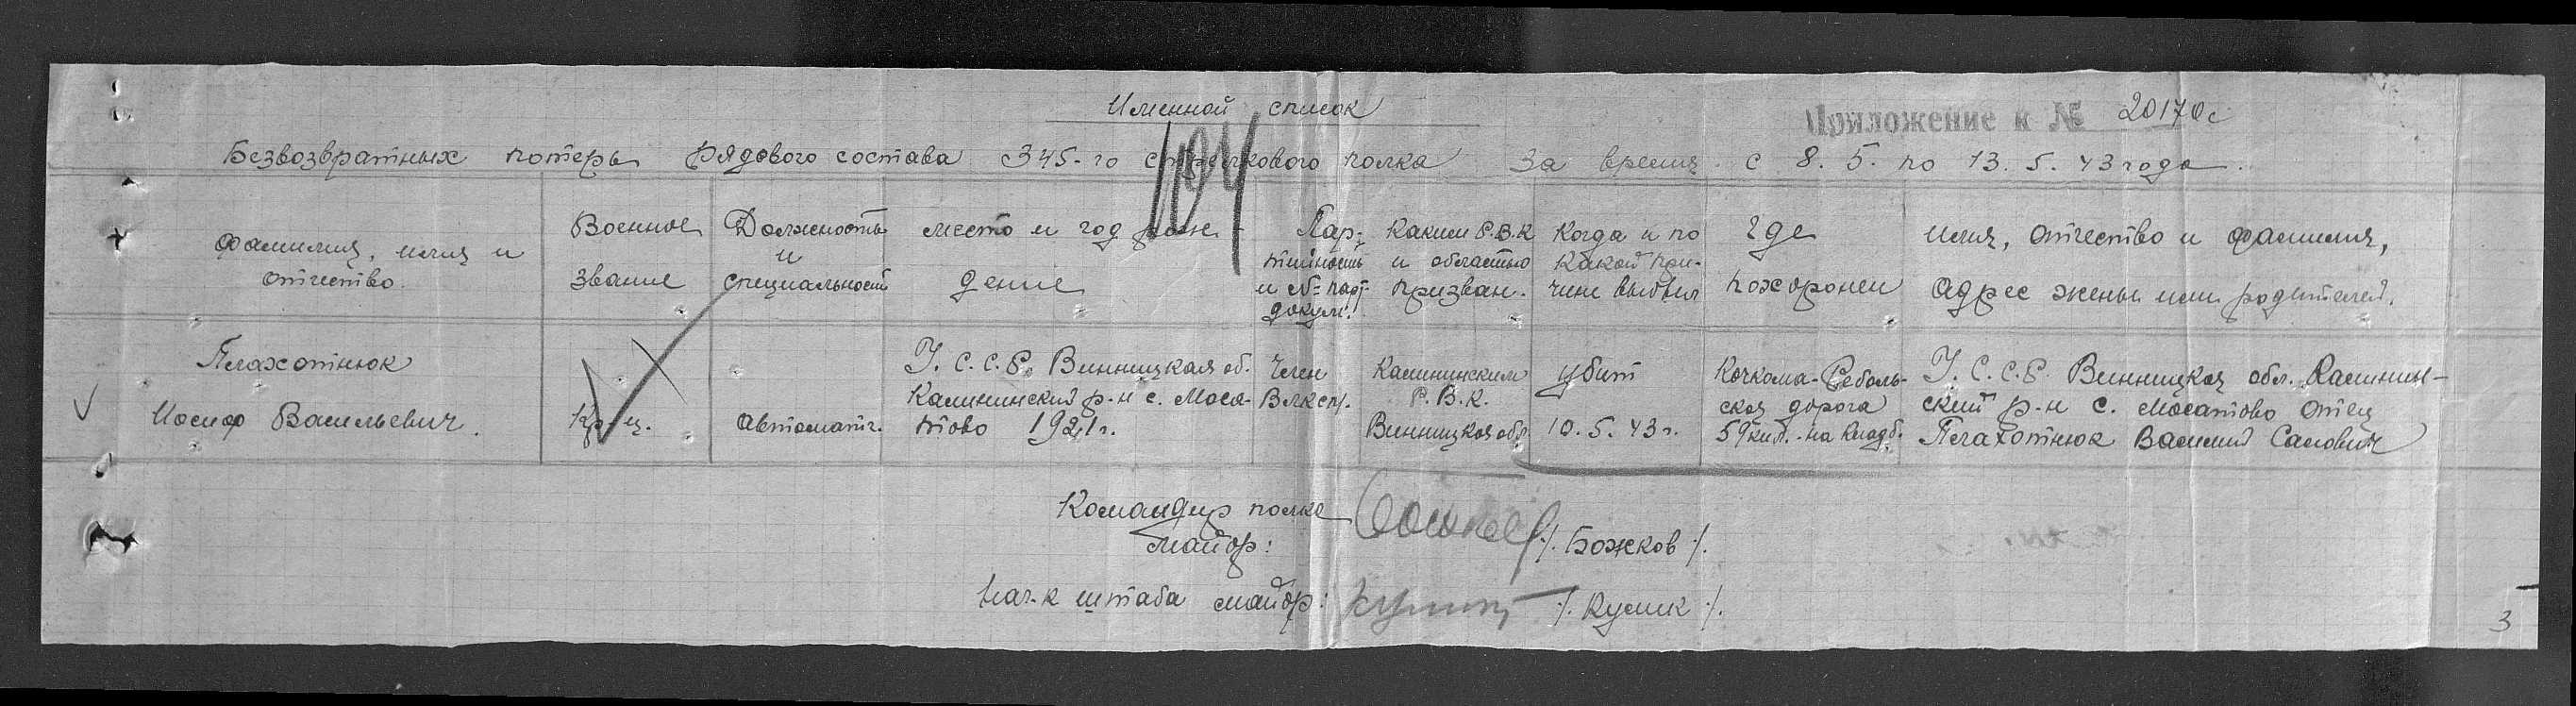 Именной список
Приложение к № 20170с
Безвозвратных потерь рядового состава с 345-го стрелкового полка за время с 8. 5. по 13. 5. 43 года.
104
фамилия, имя и отчество.
Военное звание
Должность и специальность
место и год рож-
дение
Пар-
тийность
и № парт.
докум.
Каким Р.В.К
и областью
призван.
Когда и по
какой при-
чине выбыл
где
похоронен
имя, отчество и фамилия,
адрес жены или родителей.
Плахотнюк
Иосиф Васильевич.
Кр-ец.
автоматч.
У. С. С. Р. Винницкая об.
Калининский р-н с. Моса-
тово 1921г.
Член
Влксм.
Калининским
Р. В. К.
Винницкой обл
убит
10. 5. 43 г.
Кочкома-Реболь-
ская дорога
59 кил. на кладб.
У. С. С. Р. Винницкая обл. Калинин-
ский р-н с. Мосатово отец
Плахотнюк Василий Савович
Командир полка
майор: /. Божков /.
Нач-к штаба майор: /. Кулик /.
3